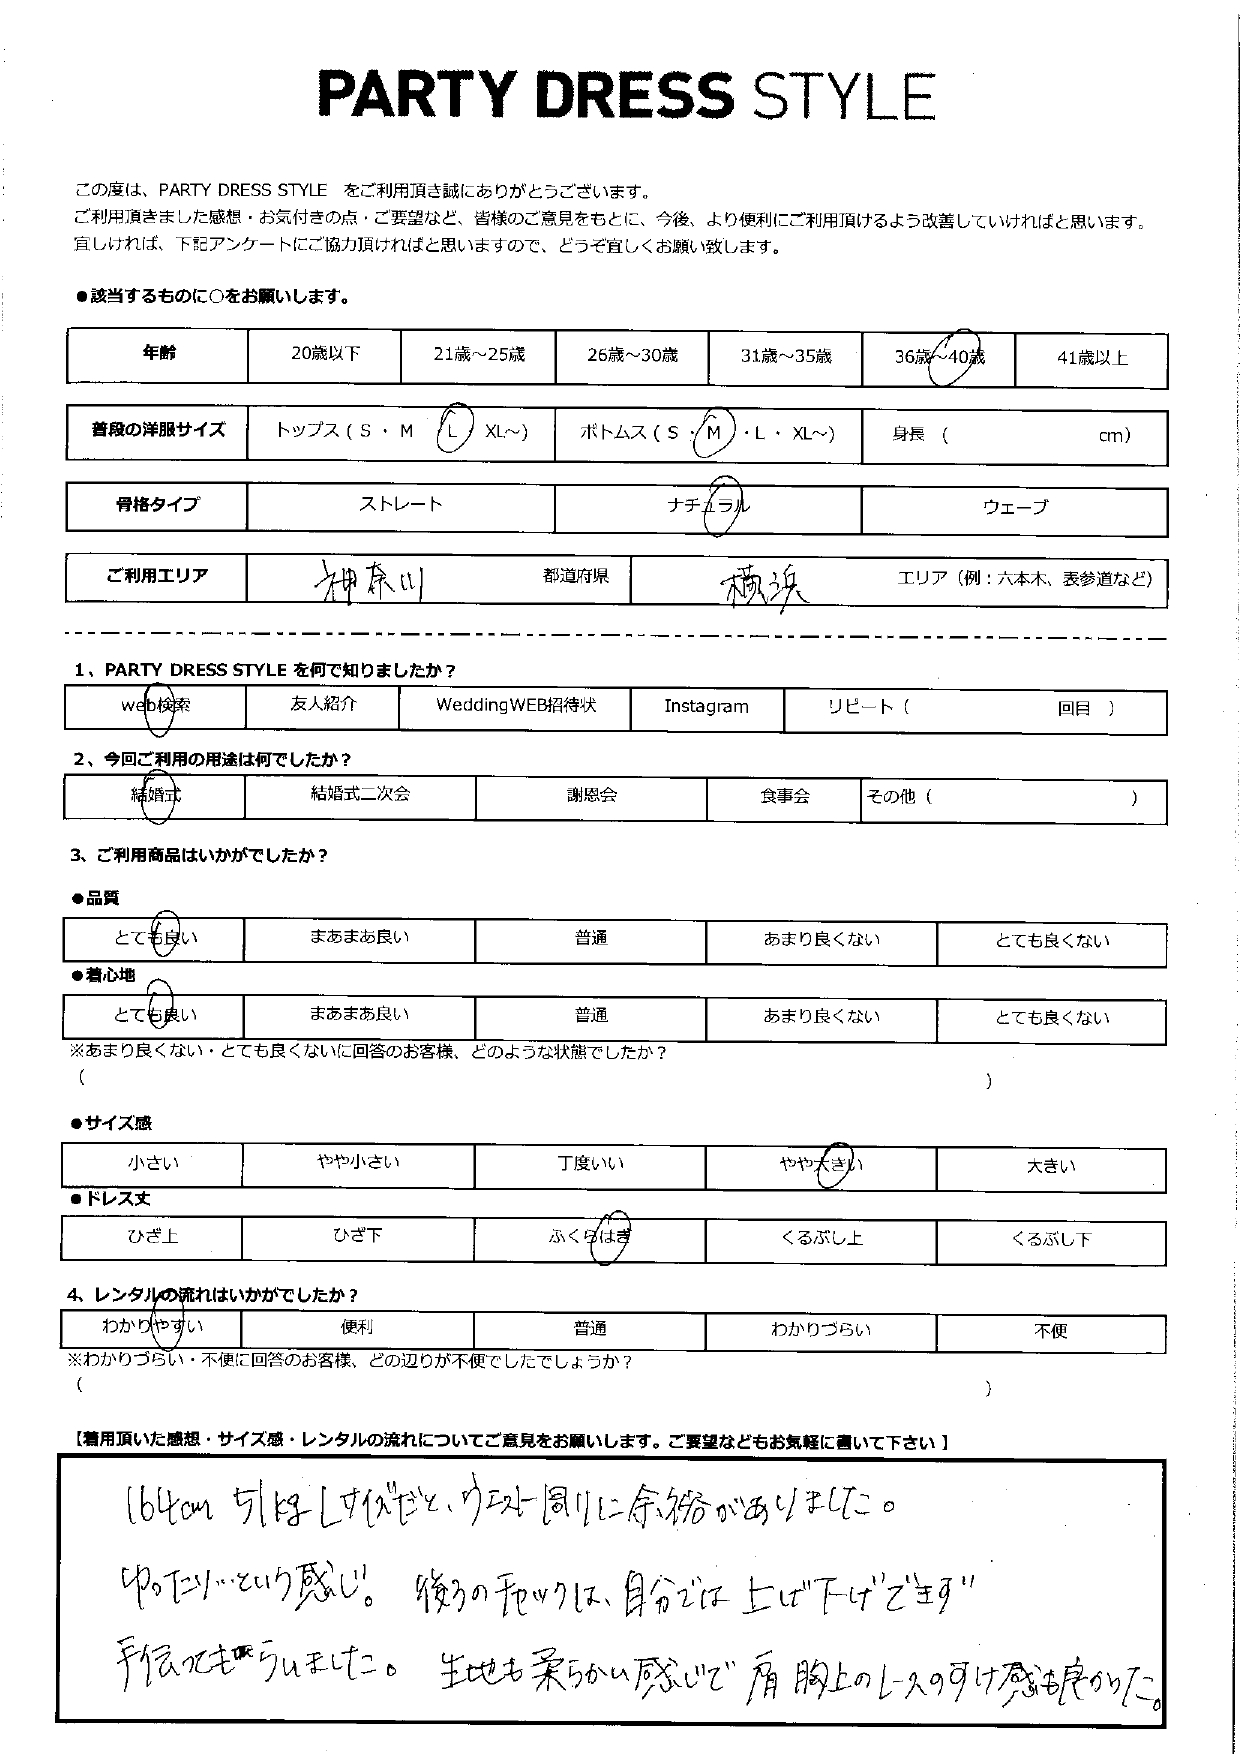 PARTY DRESS STYLE
この度は、PARTY DRESS STYLE をご利用頂き誠にありがとうございます。
ご利用頂きました感想・お気付きの点・ご要望など、皆様のご意見をもとに、今後、より便利にご利用頂けるよう改善していければと思います。
宜しければ、下記アンケートにご協力頂ければと思いますので、どうぞ宜しくお願い致します。
●該当するものに○をお願いします。
年齢 20歳以下 21歳～25歳 26歳～30歳 31歳～35歳 36歳～40歳 41歳以上
普段の洋服サイズ トップス ( S ・ M L XL～) ボトムス ( S ・ M ・ L ・ XL～) 身長 ( cm)
骨格タイプ ストレート ナチュラル ウェーブ
ご利用エリア 神奈川 都道府県 横浜 エリア（例：六本木、表参道など）
1、PARTY DRESS STYLE を何で知りましたか？
web検索 友人紹介 WeddingWEB招待状 Instagram リピート ( 回目 )
2、今回ご利用の用途は何でしたか？
結婚式 結婚式二次会 謝恩会 食事会 その他 ( )
3、ご利用商品はいかがでしたか？
●品質
とても良い まあまあ良い 普通 あまり良くない とても良くない
●着心地
とても良い まあまあ良い 普通 あまり良くない とても良くない
※あまり良くない・とても良くないに回答のお客様、どのような状態でしたか？
( )
●サイズ感
小さい やや小さい 丁度いい やや大きい 大きい
●ドレス丈
ひざ上 ひざ下 ふくらはぎ くるぶし上 くるぶし下
4、レンタルの流れはいかがでしたか？
わかりやすい 便利 普通 わかりづらい 不便
※わかりづらい・不便に回答のお客様、どの辺りが不便でしたでしょうか？
( )
【着用頂いた感想・サイズ感・レンタルの流れについてご意見をお願いします。ご要望などもお気軽に書いて下さい 】
164cm 51kg Lサイズだと、ウエスト周りに余裕がありました。
ゆったり…という感じ。 後ろのチャックは、自分では上げ下げできず
手伝ってもらいました。 生地も柔らかい感じで 肩 胸上のレースのすけ感も良かった。